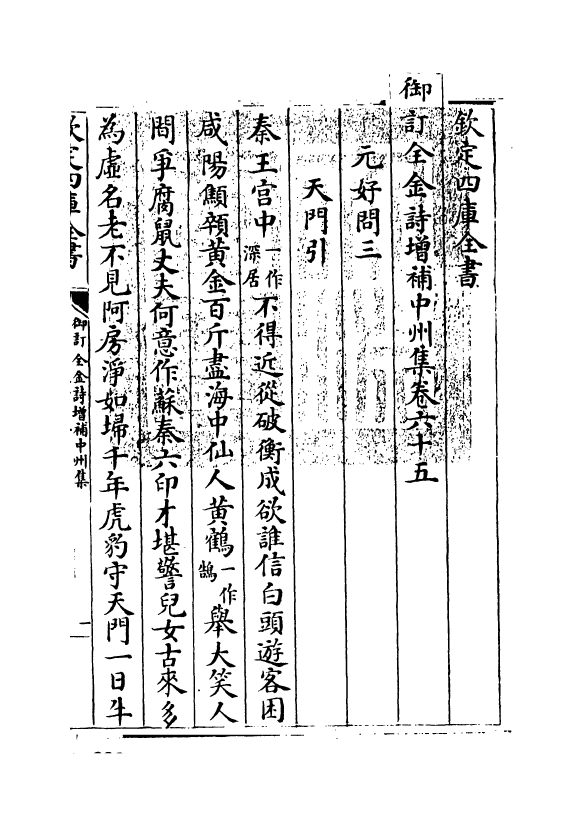 欽定四庫全書
御訂全金詩增補中州集卷六十五
元好問三
天門引
秦王宮中一作深居不得近從破衡成欲誰信白頭遊客困
咸陽顑頷黃金百斤盡海中仙人黃鶴一作鵠舉大笑人
間爭腐鼠丈夫何意作蘇秦六印才堪警兒女古來多
為虛名老不見阿房淨如埽千年虎豹守天門一日牛
欽定四庫全書
御訂全金詩增補中州集
一